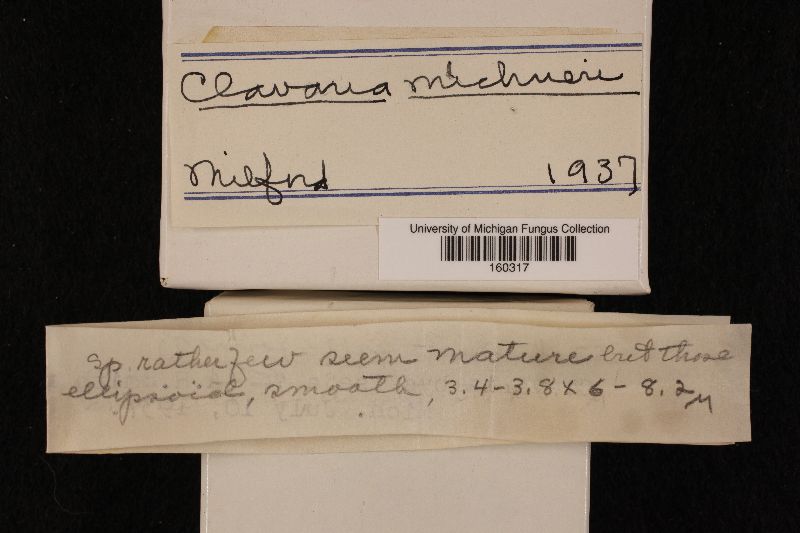 Clavaria Michneri
Milford 1937
University of Michigan Fungus Collection
160317
sp. rather few seem mature but those
ellipsoid, smooth, 3.4-3.8 x 6-8.2 μ